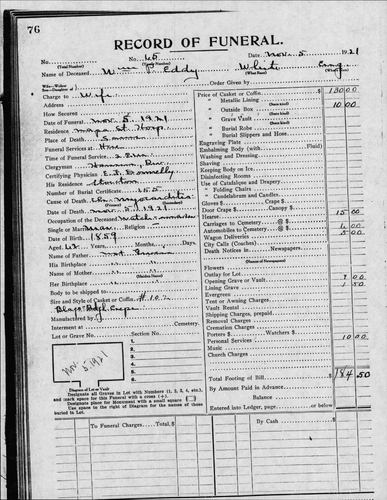 76
RECORD OF FUNERAL.
No. (Total Number) No. 60 (Yearly Number) Date Nov. 5 1921
Name of Deceased Wm J. Eddy White (What Race)
Charge to Wife Order Given by
Address
How Secured
Date of Funeral Nov. 5, 1921
Residence
Place of Death Same
Funeral Services at Home
Time of Funeral Service 2 P.m.
Clergyman
Certifying Physician E. J. Donnelly
His Residence Stockton
Number of Burial Certificate 155
Cause of Death myocarditis
Date of Death Nov. 5, 1921
Occupation of the Deceased
Single or Married Religion
Date of Birth 1859
Aged Years, Months, Days
Name of Father not
His Birthplace
Name of Mother
Her Birthplace
Body to be shipped to
Size and Style of Casket or Coffin #102
Manufactured by
Interment at Cemetery
Lot or Grave No. Section No.
1.
2.
3.
4.
5.
6.
Nov. 5, 1921
Diagram of Lot or Vault
Designate all Graves in Lot with Numbers (1, 2, 3, 4, etc.),
and mark space for this Funeral with a cross (+)
Designate place for Monument with a small square
Use space to the right of Diagram for the names of those
buried in Lot.
Price of Casket or Coffin $ 130 00
" Metallic Lining
" Outside Box (State kind) 10 00
" Grave Vault (State kind)
" Burial Robe (State kind)
" Burial Slippers and Hose
Engraving Plate
Embalming Body (with Fluid)
Washing and Dressing
Shaving
Keeping Body on Ice
Disinfecting Rooms
Use of Catafalque and Drapery
" Folding Chairs
" Candelabrum and Candles
Gloves
Door Crape Canopy
Hearse 15 00
Carriages to Cemetery @ $
Automobiles to Cemetery @ $
Wagon Deliveries 5 00
City Calls (Coaches)
Death Notices in Newspapers
(Names of Newspapers)
Flowers
Outlay for Lot
Opening Grave or Vault
Lining Grave 1 50
Evergreen
Tent or Awning Charges
Vault Rental
Shipping Charges, prepaid
Removal Charges
Cremation Charges
Porters $ Watchers $
Personal Services 10 00
Music
Church Charges
Total Footing of Bill $ 184 50
By Amount Paid in Advance
Balance
Entered into Ledger, page or below.
To Funeral Charges, Total $ By Cash $